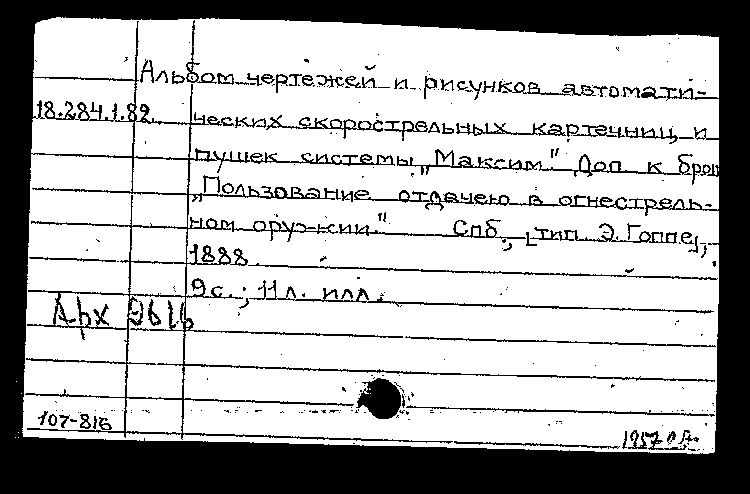 Альбом чертежей и рисунков автомати-
18.284.1.82. ческих скорострельных картечниц и
пушек системы „Максим". Доп. к брош
„Пользование отдачею в огнестрель-
ном оружии." Спб., [тип. Э. Гоппе],
1888.
9 с.; 11 л. илл.
Арх
107-816
1957